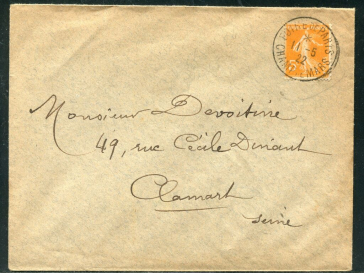 Monsieur Devoitine
49, rue Cécile Dinant
Clamart
Seine